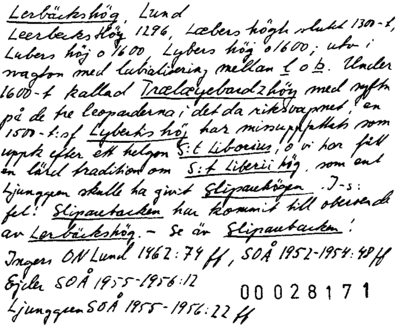 Lerbäckshög, Lund
Leerbeckshög 1296, Læbers högh slutet 1300-t,
Lubers höj o 1600, Lybers hög o 1600; utv i
vagton med labialisering mellan l o b. Under
1600-t kallad Trælæyebardzhöy med syftn
på de tre leoparderna i det da riksvapnet, en
1500-t:sf Lyberks höj har missuppfattats som
uppk efter ett helgon S:t Liborius, o vi har fått
en lärd tradition om S:t Liberii hög, som enl
Ljunggren skulle ha givit Slipauhögen. I-s:
fel: Slipaubacken har kommit till oberoende
av Lerbäckshög. - Se än Slipaubacken!
Ingers ON Lund 1962:74 ff, SOÅ 1952-1954:48 ff
Ejder SOÅ 1955-1956:12
Ljunggren SOÅ 1955-1956:22 ff
00028171